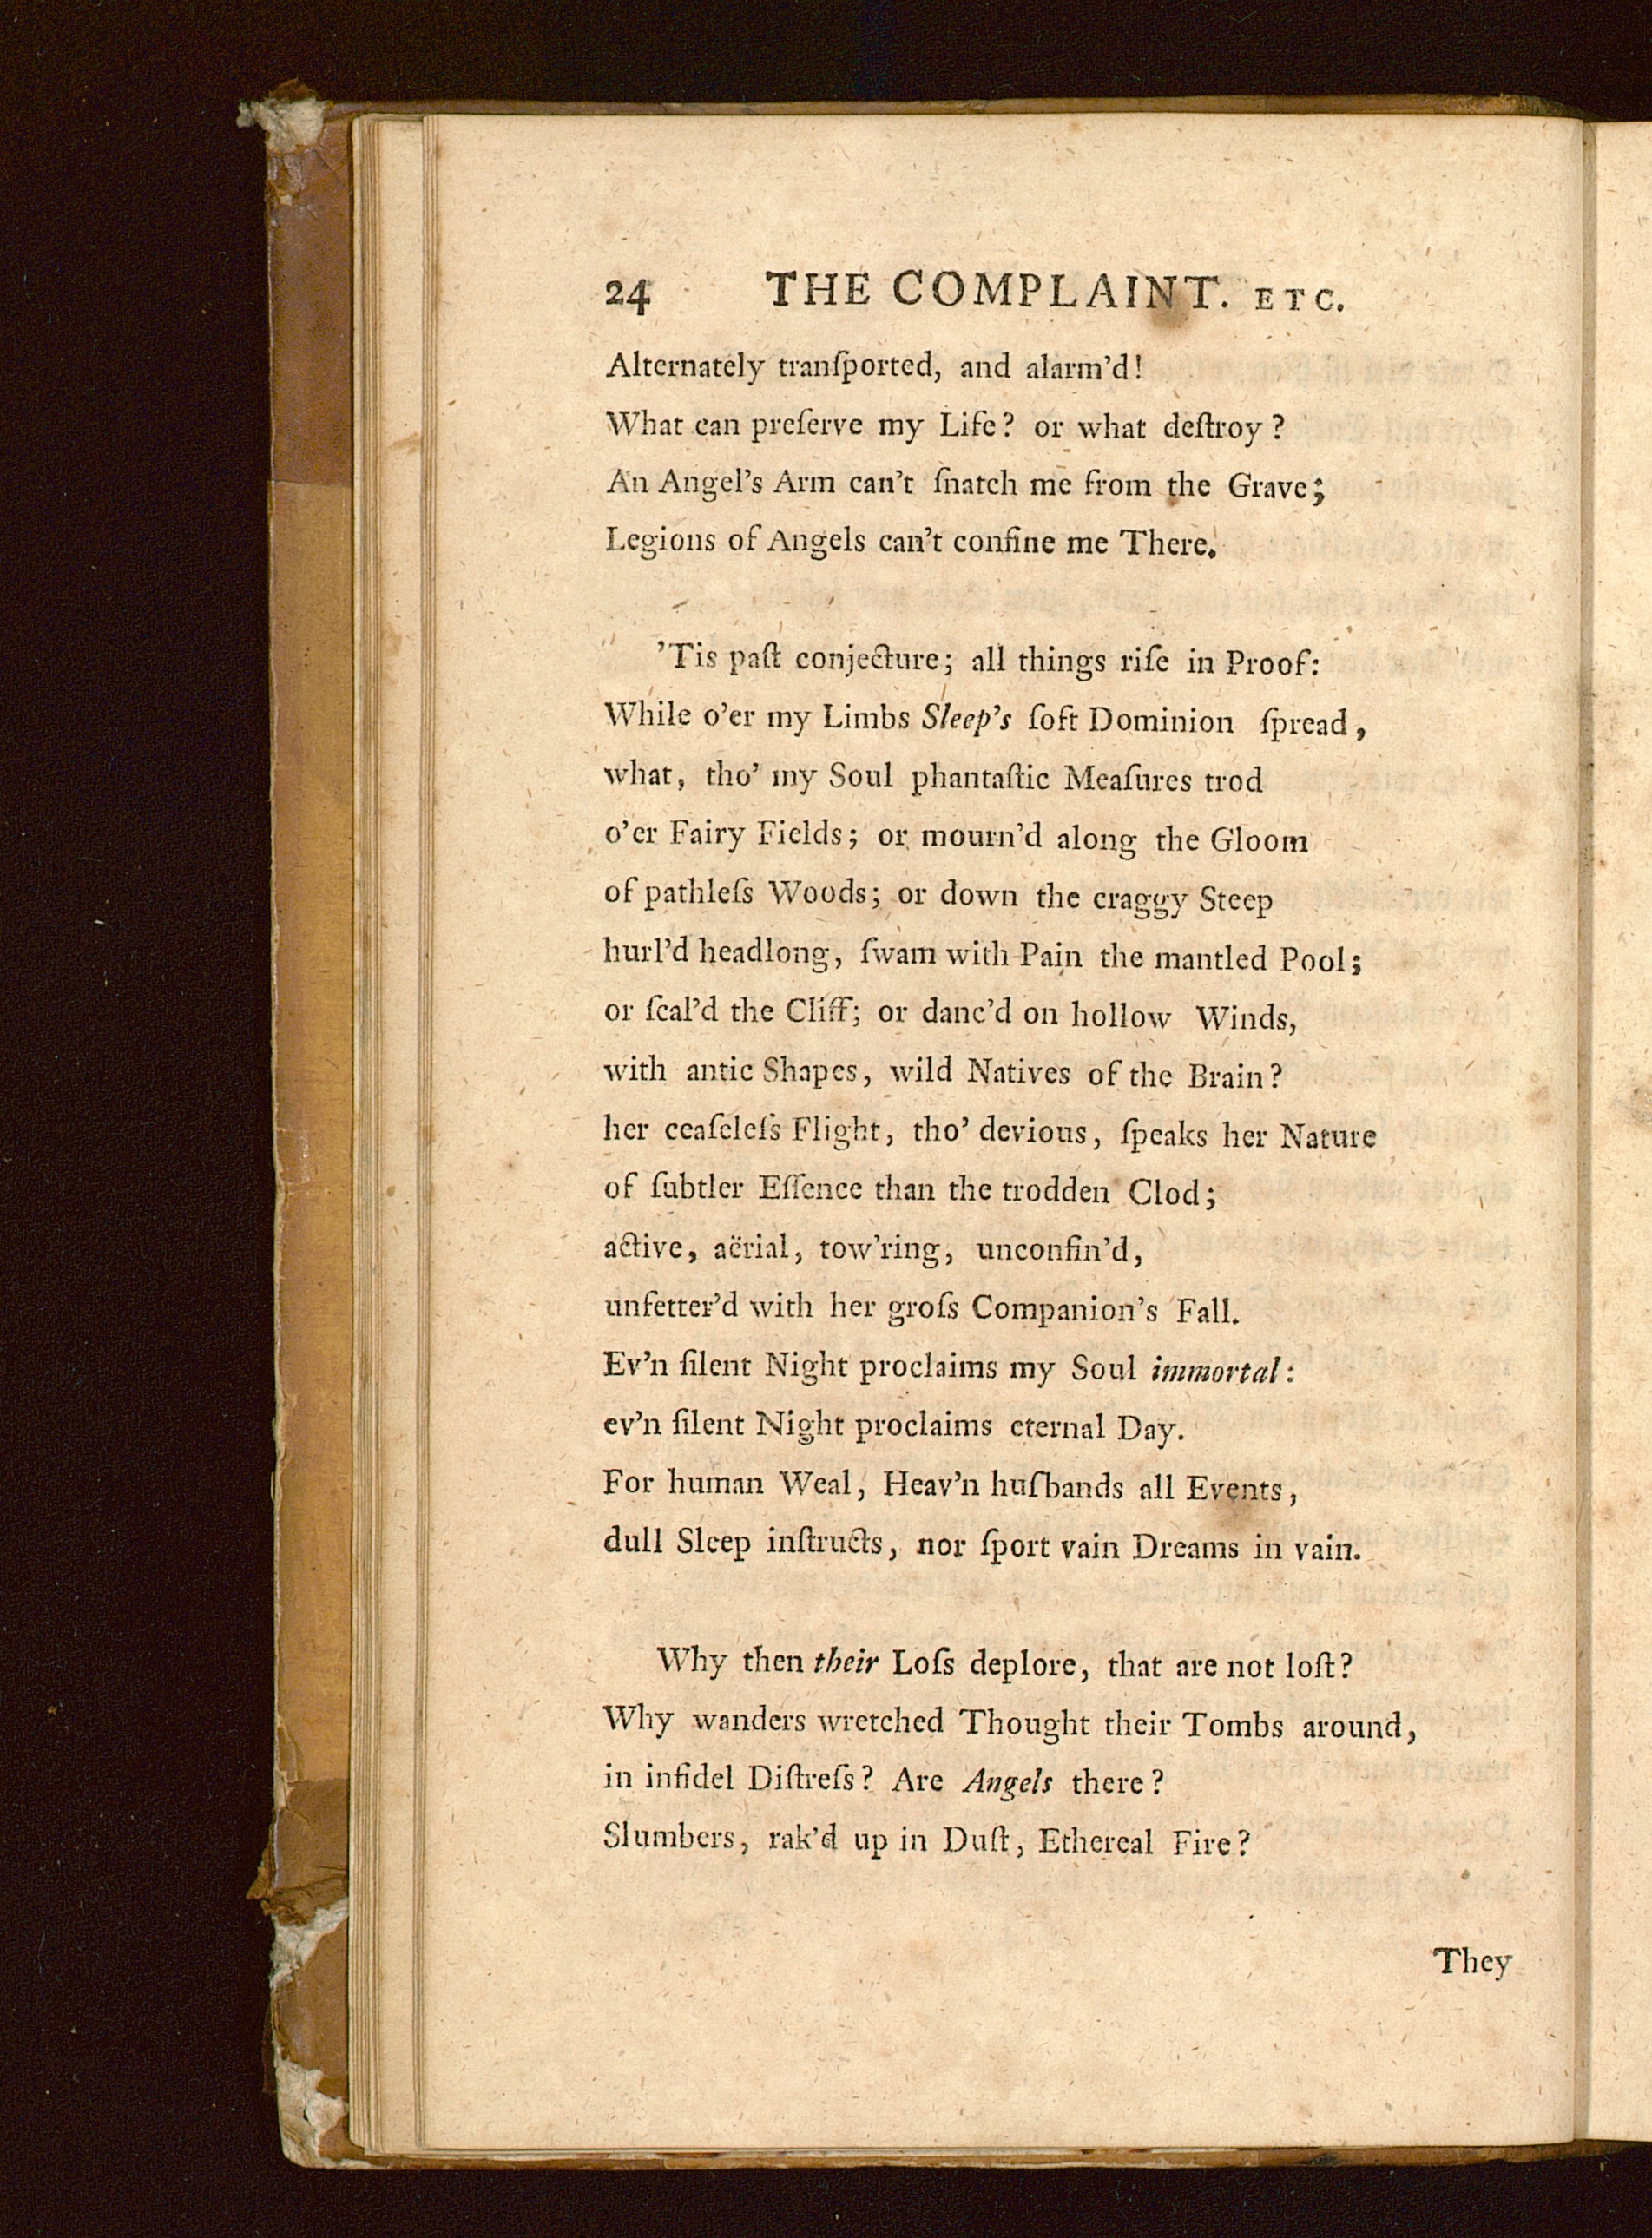 24 THE COMPLAINT. ETC.
Alternately tranſported, and alarm'd!
What can preſerve my Life? or what deſtroy?
An Angel's Arm can't ſnatch me from the Grave;
Legions of Angels can't confine me There.
'Tis paſt conjecture; all things riſe in Proof:
While o'er my Limbs Sleep's ſoft Dominion ſpread,
what, tho' my Soul phantaſtic Meaſures trod
o'er Fairy Fields; or mourn'd along the Gloom
of pathleſs Woods; or down the craggy Steep
hurl'd headlong, ſwam with Pain the mantled Pool;
or ſcal'd the Cliff; or danc'd on hollow Winds,
with antic Shapes, wild Natives of the Brain?
her ceaſeleſs Flight, tho' devious, ſpeaks her Nature
of ſubtler Eſſence than the trodden Clod;
active, aërial, tow'ring, unconfin'd,
unfetter'd with her groſs Companion's Fall.
Ev'n ſilent Night proclaims my Soul immortal:
ev'n ſilent Night proclaims eternal Day.
For human Weal, Heav'n huſbands all Events,
dull Sleep inſtructs, nor ſport vain Dreams in vain.
Why then their Loſs deplore, that are not loſt?
Why wanders wretched Thought their Tombs around,
in infidel Diſtreſs? Are Angels there?
Slumbers, rak'd up in Duſt, Ethereal Fire?
They